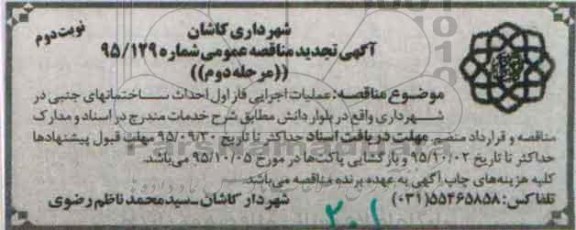 شهرداری کاشان
نوبت دوم
آگهی تجدید مناقصه عمومی شماره ۹۵/۱۲۹
((مرحله دوم))
موضوع مناقصه: عملیات اجرایی فاز اول احداث ساختمانهای جنبی در
شهرداری واقع در بلوار دانش مطابق شرح خدمات مندرج در اسناد و مدارک
مناقصه و قرارداد منضم مهلت دریافت اسناد حداکثر تا تاریخ ۹۵/۰۹/۳۰ مهلت قبول پیشنهادها
حداکثر تا تاریخ ۹۵/۱۰/۰۲ و بازگشایی پاکت‌ها در مورخ ۹۵/۱۰/۰۵ می‌باشد.
کلیه هزینه‌های چاپ آگهی به عهده برنده مناقصه می‌باشد.
تلفاکس: ۵۵۴۶۵۸۵۸ (۰۳۱)
شهردار کاشان ـ سید محمد ناظم رضوی
۲۰۱